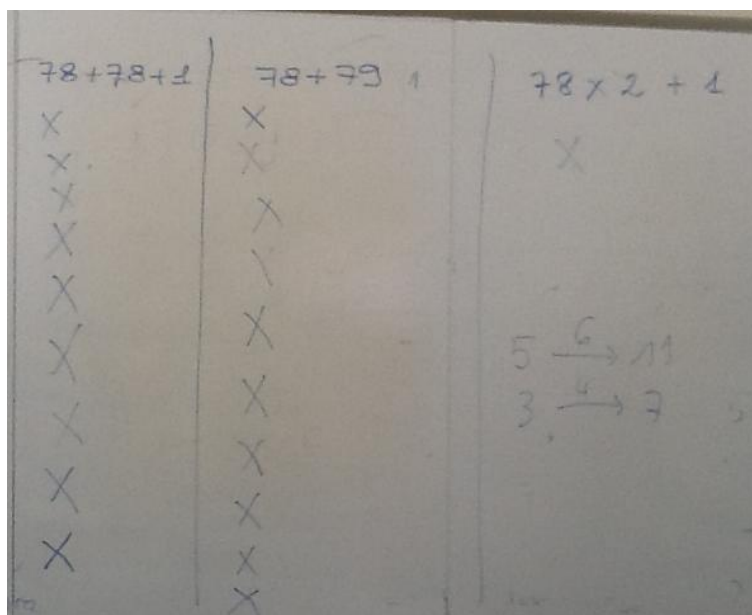 78+78+1 78+79 1 78 x 2 + 1
X X X
X X
X X
X X
X X
X X
X X
X X
X X
X
5 6→ 11
3 4→ 7